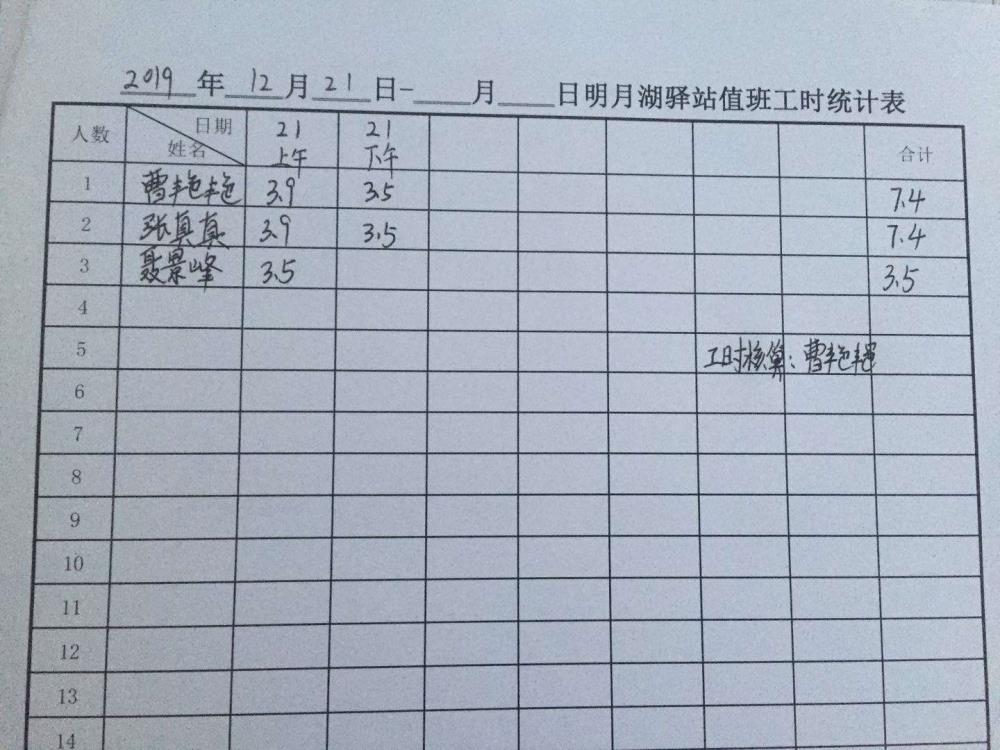 2019年12月21日-____月____日明月湖驿站值班工时统计表
人数 日期 姓名 21 上午 21 下午 合计
1 曹艳艳 3.9 3.5 7.4
2 张真真 3.9 3.5 7.4
3 聂景峰 3.5 3.5
4
5 工时核算：曹艳艳
6
7
8
9
10
11
12
13
14